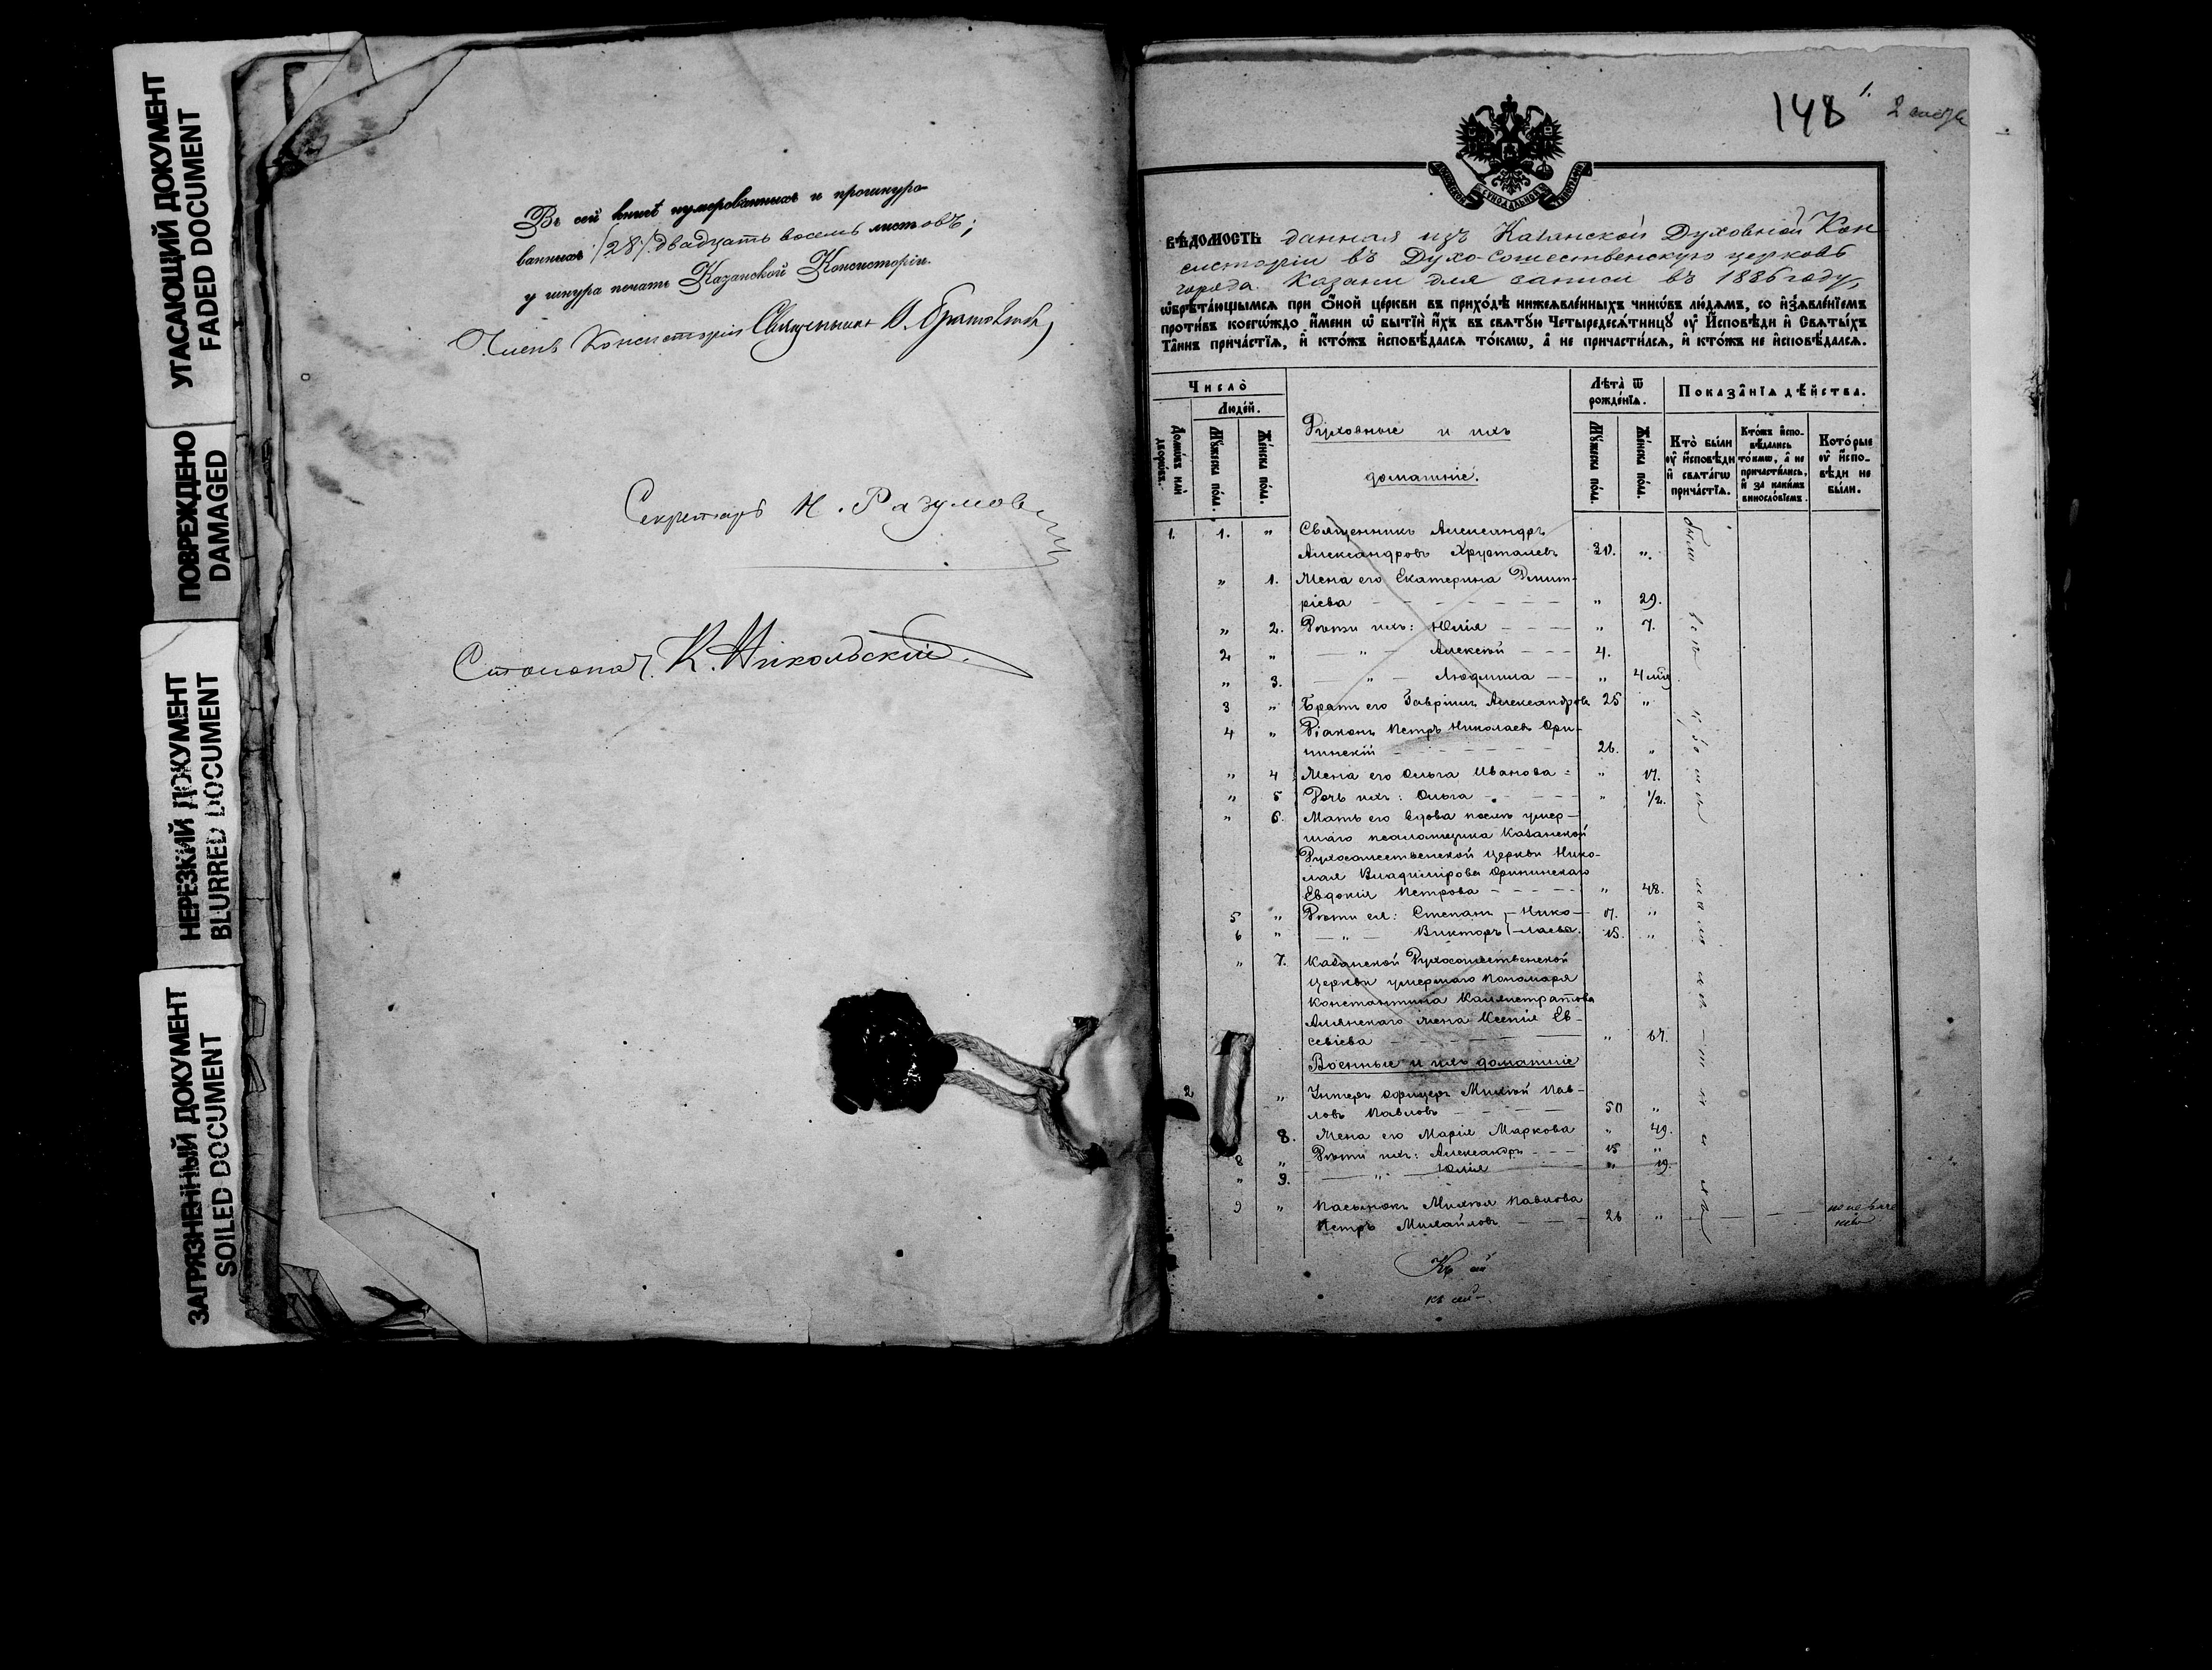 УГАСАЮЩИЙ ДОКУМЕНТ
FADED DOCUMENT
ПОВРЕЖДЕНО
DAMAGED
НЕРЕЗКИЙ ДОКУМЕНТ
BLURRED DOCUMENT
ЗАГРЯЗНЕННЫЙ ДОКУМЕНТ
SOILED DOCUMENT
Въ сей книгѣ нумерованныхъ и прошнуро-
ванныхъ /28/ двадцать восемь листовъ;
у шнура печать Казанской Консисторіи.
Членъ Консисторіи Священникъ
Секретарь Н. Разумов
Столонач. К. Никольскій.
148
1.
ВѢДОМОСТЬ данная изъ Казанской Духовной Кон
систоріи въ Духо-Сошественскую церковь
города Казани для записи въ 1886 году,
ѡбрѣтающымсѧ при Оной церкви въ приходѣ нижеѧвленныхъ чинѡвъ людѧмъ, со изъѧвленіемъ
противъ коегѡждо имени ѡ бытіи ихъ въ свѧтꙋю Четыредесѧтницꙋ оу Исповѣди и Свѧтыхъ
Таинъ причастіѧ, и ктожъ исповѣдалсѧ токмѡ, а не причастилсѧ, и ктожъ не исповѣдалсѧ.
Число
Людей.
Домѡвъ или дворѡвъ.
Мꙋжеска пола.
Женска пола.
Духовные и ихъ
домашніе.
Лѣта ѿ рожденіѧ.
Мꙋжеска пола.
Женска пола.
Показаніѧ дѣйства.
Кто были оу исповѣди и свѧтагѡ причастіѧ.
Ктожъ исповѣдались токмѡ, а не причастились, и за какимъ винословіемъ.
Которые оу исповѣди не были.
1. 1. " Священникъ Александръ
Александровъ Хрусталевъ 30. ".
" 1. Жена его Екатерина Дмит-
ріева " 29.
" 2. Дѣти ихъ: Юлія " 7.
2 " " Алексѣй 4.
" 3. " Людмила " 4
3 " Братъ его Гавріилъ Александровъ 25 "
4 " Діаконъ Петръ Николаевъ Ори-
нинскій 26. "
" 4 Жена его Ольга Иванова " 17.
" 5 Дочь ихъ: Ольга " 1/2.
" 6. Мать его вдова послѣ умер-
шаго псаломщика Казанской
Духосошественской церкви Нико-
лая Владимірова Орининскаго
Евдокія Петрова " 48.
5 " Дѣти ея: Степанъ Нико- 17. "
6 " " Викторъ лаевы. 15. "
" 7. Казанской Духосошественской
церкви умершаго пономаря
Константина Каллистратова
жена Ксенія Ев-
севіева " 67.
Военные и ихъ домашніе
2 " Унтеръ офицеръ Михѣй Пав-
ловъ Павловъ 50 "
8. Жена его Марія Маркова " 49.
8 " Дѣти ихъ: Александръ 15 "
" 9. " Юлія " 19.
9 " Пасынокъ Михѣя Павлова
Петръ Михайловъ 26 "